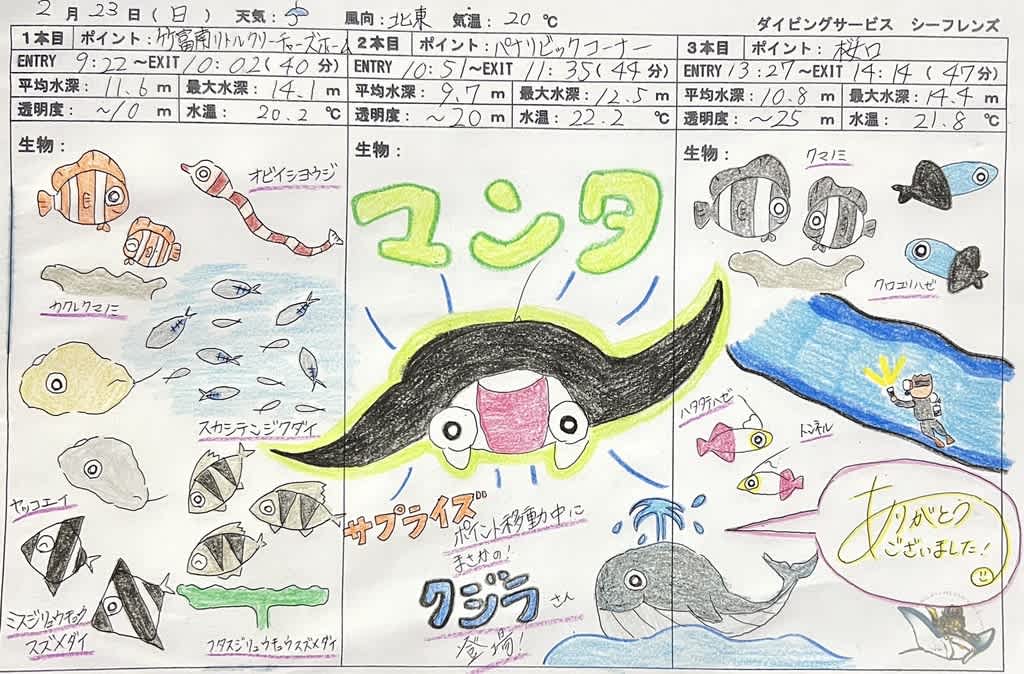 2月23日(日) 天気: 風向:北東 気温:20℃
ダイビングサービス シーフレンズ
1本目 ポイント:竹富南リトルクリーチャーズホーム
ENTRY 9:22~EXIT 10:02(40分)
平均水深:11.6m 最大水深:14.1m
透明度:~10m 水温:20.2℃
生物:
オビイシヨウジ
カクレクマノミ
スカシテンジクダイ
ヤッコエイ
ミスジリュウキュウ
スズメダイ
フタスジリュウキュウスズメダイ
2本目 ポイント:パナリビックコーナー
ENTRY 10:51~EXIT 11:35(44分)
平均水深:9.7m 最大水深:12.5m
透明度:~20m 水温:22.2℃
生物:
マンタ
サプライズ
ポイント移動中に
まさかの!
クジラさん
登場!
3本目 ポイント:桜口
ENTRY 13:27~EXIT 14:14(47分)
平均水深:10.8m 最大水深:14.4m
透明度:~25m 水温:21.8℃
生物:
クマノミ
クロユリハゼ
ハタタテハゼ
トンネル
ありがとう
ございました!